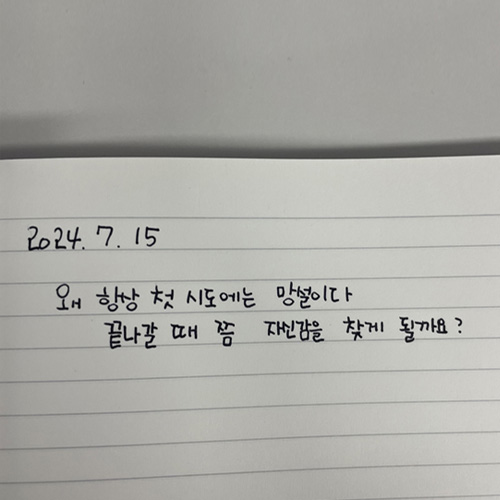 2024. 7. 15
왜 항상 첫 시도에는 망설이다
끝나갈 때 쯤 자신감을 찾게 될까요?